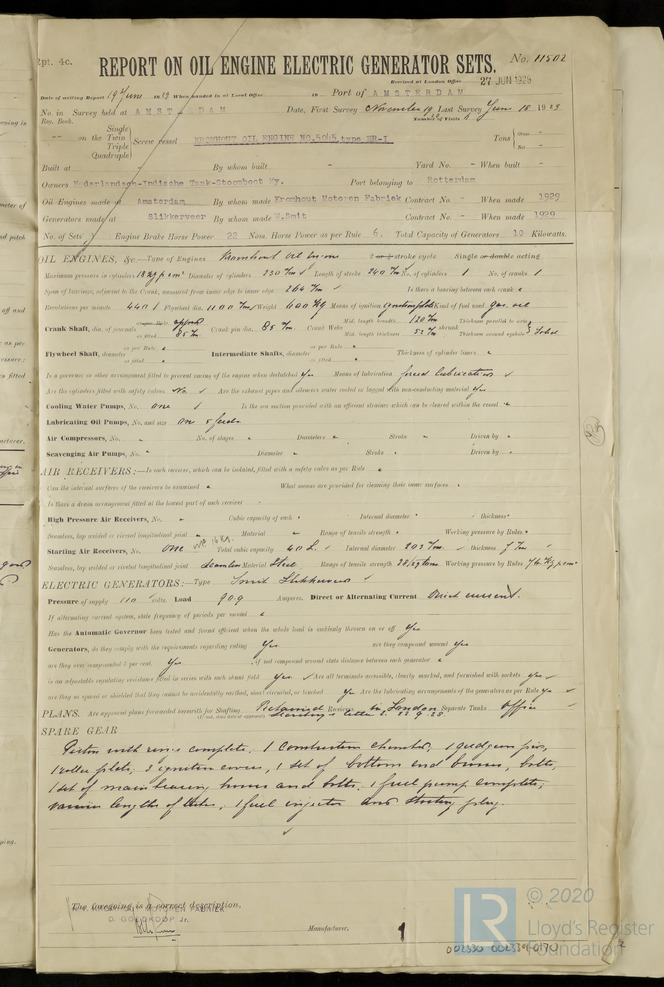 Rpt. 4c.
REPORT ON OIL ENGINE ELECTRIC GENERATOR SETS.
No. 11502
Received at London Office 27 JUN 1929
Date of writing Report 19 June 1929 When handed in at Local Office 19 Port of AMSTERDAM
No. in Survey held at AMSTERDAM Date, First Survey November 19 Last Survey June 18 1929
Reg. Book. Number of Visits
on the Single Twin Triple Quadruple Screw vessel KROMHOUT OIL ENGINE NO. 5045, type HR-I Tons Gross - Net -
Built at - By whom built - Yard No. - When built -
Owners Nederlandsch-Indische Tank-Stoomboot My. Port belonging to Rotterdam
Oil Engines made at Amsterdam By whom made Kromhout Motoren Fabriek Contract No. - When made 1929
Generators made at Slikkerveer By whom made W.Smit Contract No. - When made 1929
No. of Sets Engine Brake Horse Power 22 Nom. Horse Power as per Rule 6. Total Capacity of Generators 10 Kilowatts.
OIL ENGINES, &c.—Type of Engines Kromhout Oil Engine 2 or 4 stroke cycle Single or double acting
Maximum pressure in cylinders 18 kg p cm² Diameter of cylinders 230 mm Length of stroke 240 mm No. of cylinders 1 No. of cranks 1
Span of bearings, adjacent to the Crank, measured from inner edge to inner edge 264 mm Is there a bearing between each crank
Revolutions per minute 440 Flywheel dia. 1100 mm Weight 600 kg Means of ignition Kind of fuel used gas oil
Crank Shaft, dia. of journals as per Rule appvd as fitted 85 mm Crank pin dia. 85 mm Crank Webs Mid. length breadth 120 mm Mid. length thickness 52 mm shrunk Thickness parallel to axis Thickness around eyehole Solid
Flywheel Shaft, diameter as per Rule as fitted Intermediate Shafts, diameter as per Rule as fitted Thickness of cylinder liners
Is a governor or other arrangement fitted to prevent racing of the engine when declutched Yes Means of lubrication forced lubrication
Are the cylinders fitted with safety valves No Are the exhaust pipes and silencers water cooled or lagged with non-conducting material Yes
Cooling Water Pumps, No. one Is the sea suction provided with an efficient strainer which can be cleared within the vessel
Lubricating Oil Pumps, No. and size one 5 feeds
Air Compressors, No. No. of stages Diameters Stroke Driven by
Scavenging Air Pumps, No. Diameter Stroke Driven by
AIR RECEIVERS:—Is each receiver, which can be isolated, fitted with a safety valve as per Rule
Can the internal surfaces of the receivers be examined What means are provided for cleaning their inner surfaces
Is there a drain arrangement fitted at the lowest part of each receiver
High Pressure Air Receivers, No. Cubic capacity of each Internal diameter thickness
Seamless, lap welded or riveted longitudinal joint Material Range of tensile strength Working pressure by Rules
Starting Air Receivers, No. one WP 16 KG. Total cubic capacity 40 L. Internal diameter 203 mm thickness 7 mm
Seamless, lap welded or riveted longitudinal joint seamless Material Steel Range of tensile strength Working pressure by Rules
ELECTRIC GENERATORS:—Type Smit Slikkerveer
Pressure of supply 110 volts. Load 90.9 Amperes. Direct or Alternating Current Direct current.
If alternating current, state frequency of periods per second
Has the Automatic Governor been tested and found efficient when the whole load is suddenly thrown on or off Yes
Generators, do they comply with the requirements regarding rating Yes are they compound wound Yes
are they over compounded 5 per cent. Yes if not compound wound state distance between each generator
is an adjustable regulating resistance fitted in series with each shunt field Yes Are all terminals accessible, clearly marked, and furnished with sockets Yes
are they so spaced or shielded that they cannot be accidentally earthed, short circuited, or touched Yes Are the lubricating arrangements of the generators as per Rule Yes
PLANS. Are approved plans forwarded herewith for Shafting Retained Receivers in London Separate Tanks office
Secretary's letter E. 22.9.28
SPARE GEAR
Piston with rings complete, 1 Combustion chamber, 1 gudgeon pin,
1 roller plate, 3 ignition cones, 1 set of bottom end brasses, bolts,
1 set of main bearing brasses and bolts, 1 fuel pump complete,
various lengths of tubes, 1 fuel injector and starting plug.
The foregoing is a correct description,
D. GOEDKOOP Jr.
Manufacturer.
1
© 2020
LR
Lloyd's Register
Foundation
002330-002339-0170